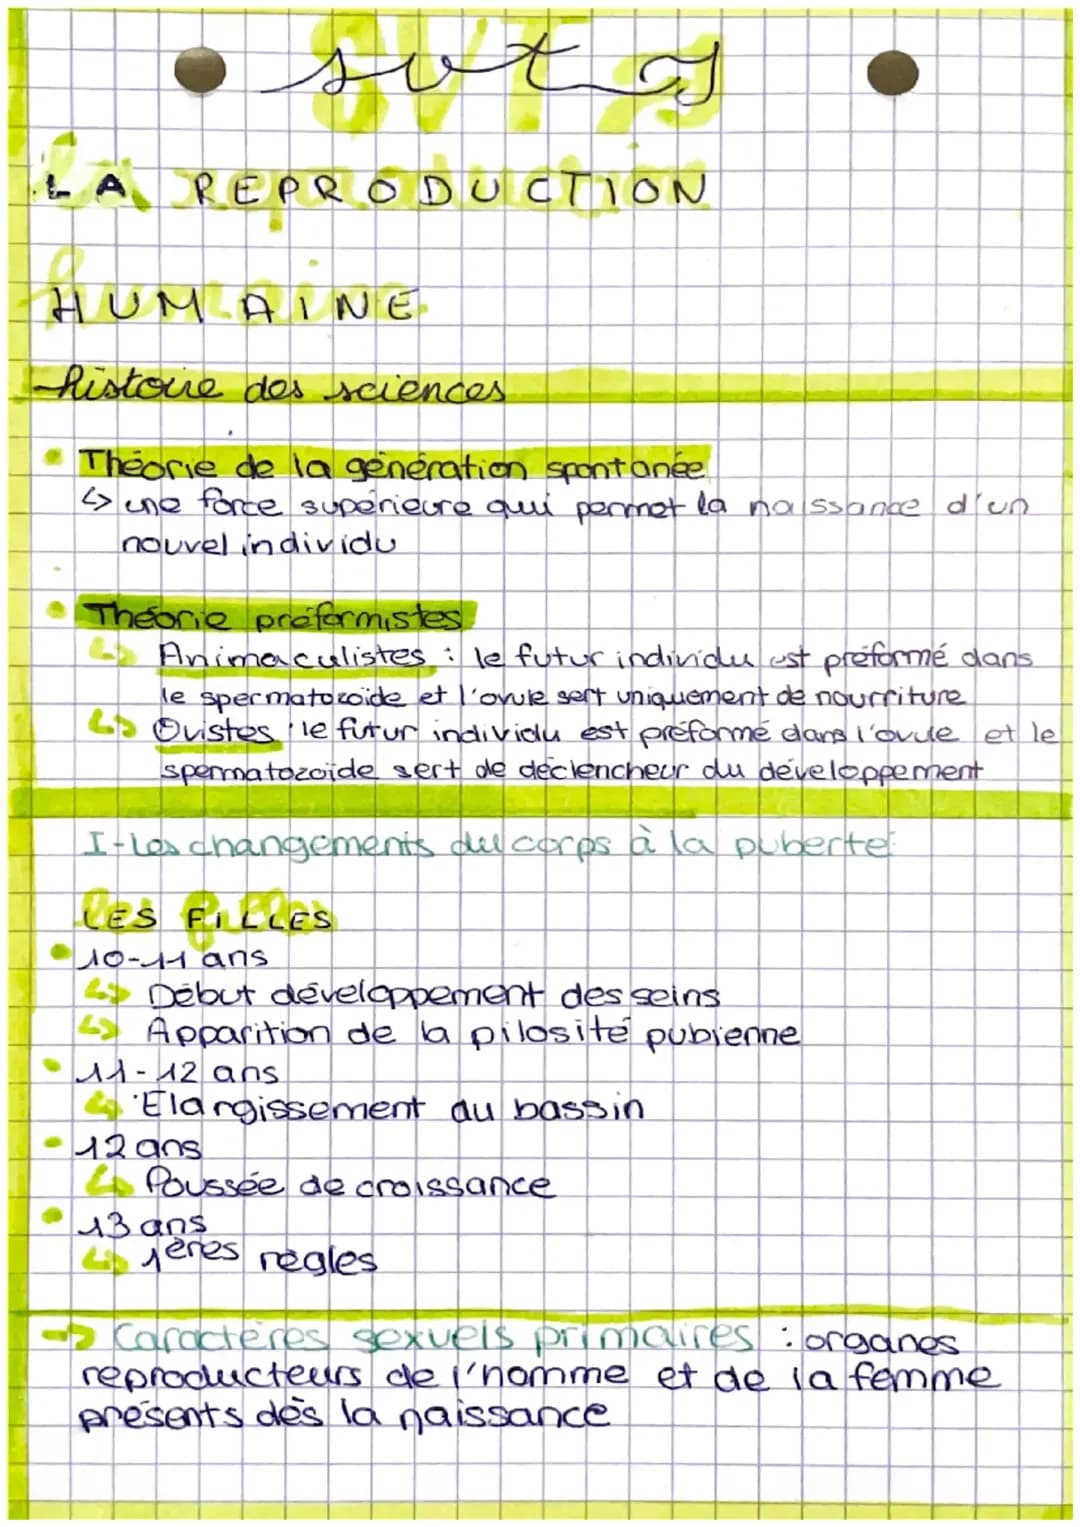 svt
LA REPRODUCTION
HUMAINE
histoire des sciences
• Théorie de la génération spontanée
↳ une force supérieure qui permet la naissance d'un
nouvel individu
• Théorie préformistes
↳ Animaculistes : le futur individu est préformé dans
le spermatozoïde et l'ovule sert uniquement de nourriture
↳ Ovistes : le futur individu est préformé dans l'ovule et le
spermatozoïde sert de déclencheur du développement
I-Les changements du corps à la puberté
LES FILLES
• 10-11 ans
↳ Début développement des seins
↳ Apparition de la pilosité pubienne
• 11-12 ans
↳ Elargissement du bassin
• 12 ans
↳ Poussée de croissance
• 13 ans
↳ 1ères règles
→ Caractères sexuels primaires : organes
reproducteurs de l'homme et de la femme
présents dès la naissance